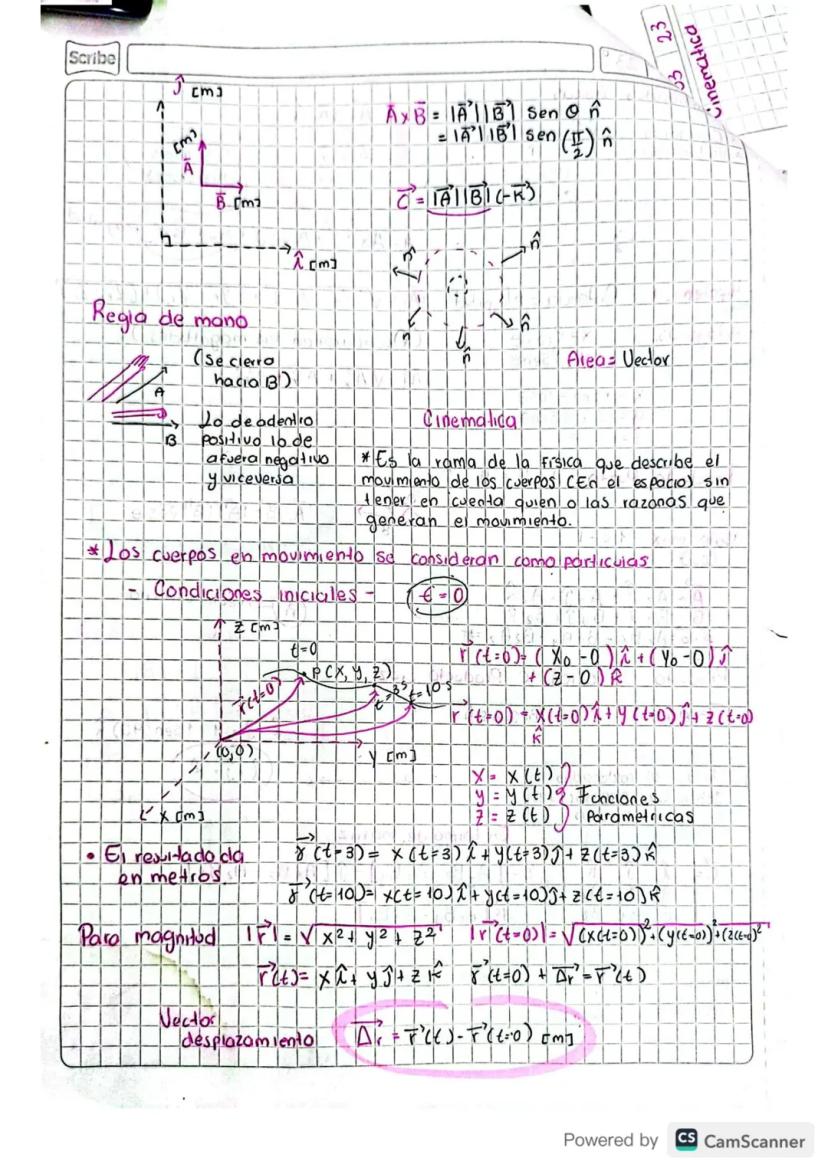 Scribe
23
33
Cinematica
ĵ [m]
[m]
Ā
B̄ [m]
λ̂ [m]
Ā x B̄ = |A⃗||B⃗| Sen θ n̂
= |A⃗||B⃗| sen (π/2) n̂
C⃗ = |A⃗||B⃗| (-K⃗)
n̂
n̂
n
n̂
n̂
Regla de mano
(Se cierra
hacia B)
A
B
Lo de adentro
positivo lo de
afuera negativo
y viceversa
Area = Vector
Cinematica
*Es la rama de la física que describe el
movimiento de los cuerpos (En el espacio) sin
tener en cuenta quien o las razonas que
generan el movimiento.
*Los cuerpos en movimiento se consideran como particulas
- Condiciones iniciales - t=0
Z [m]
t=0
P(X, Y, Z)
r⃗(t=0)
t=3s
t=10s
(0,0)
Y [m]
X [m]
r⃗(t=0) = (X₀ -0) î + (Y₀ -0) ĵ
+ (Z -0) k̂
r⃗(t=0) = X(t=0) î + Y(t=0) ĵ + Z(t=0)
k̂
X = X(t)
y = y(t) } Funciones
Z = Z(t) Parametricas
• El resultado da
en metros.
r⃗(t=3) = X(t=3) î + Y(t=3) ĵ + Z(t=3) k̂
r⃗(t=10) = X(t=10) î + Y(t=10) ĵ + Z(t=10) k̂
Para magnitud |r⃗| = √x² + y² + z² |r⃗(t=0)| = √(X(t=0))² + (Y(t=0))² + (Z(t=0))²
r⃗(t) = X î + Y ĵ + Z k̂ r⃗(t=0) + Δr⃗ = r⃗(t)
Vector
desplazamiento Δr⃗ = r⃗(t) - r⃗(t=0) [m]
Powered by CS CamScanner